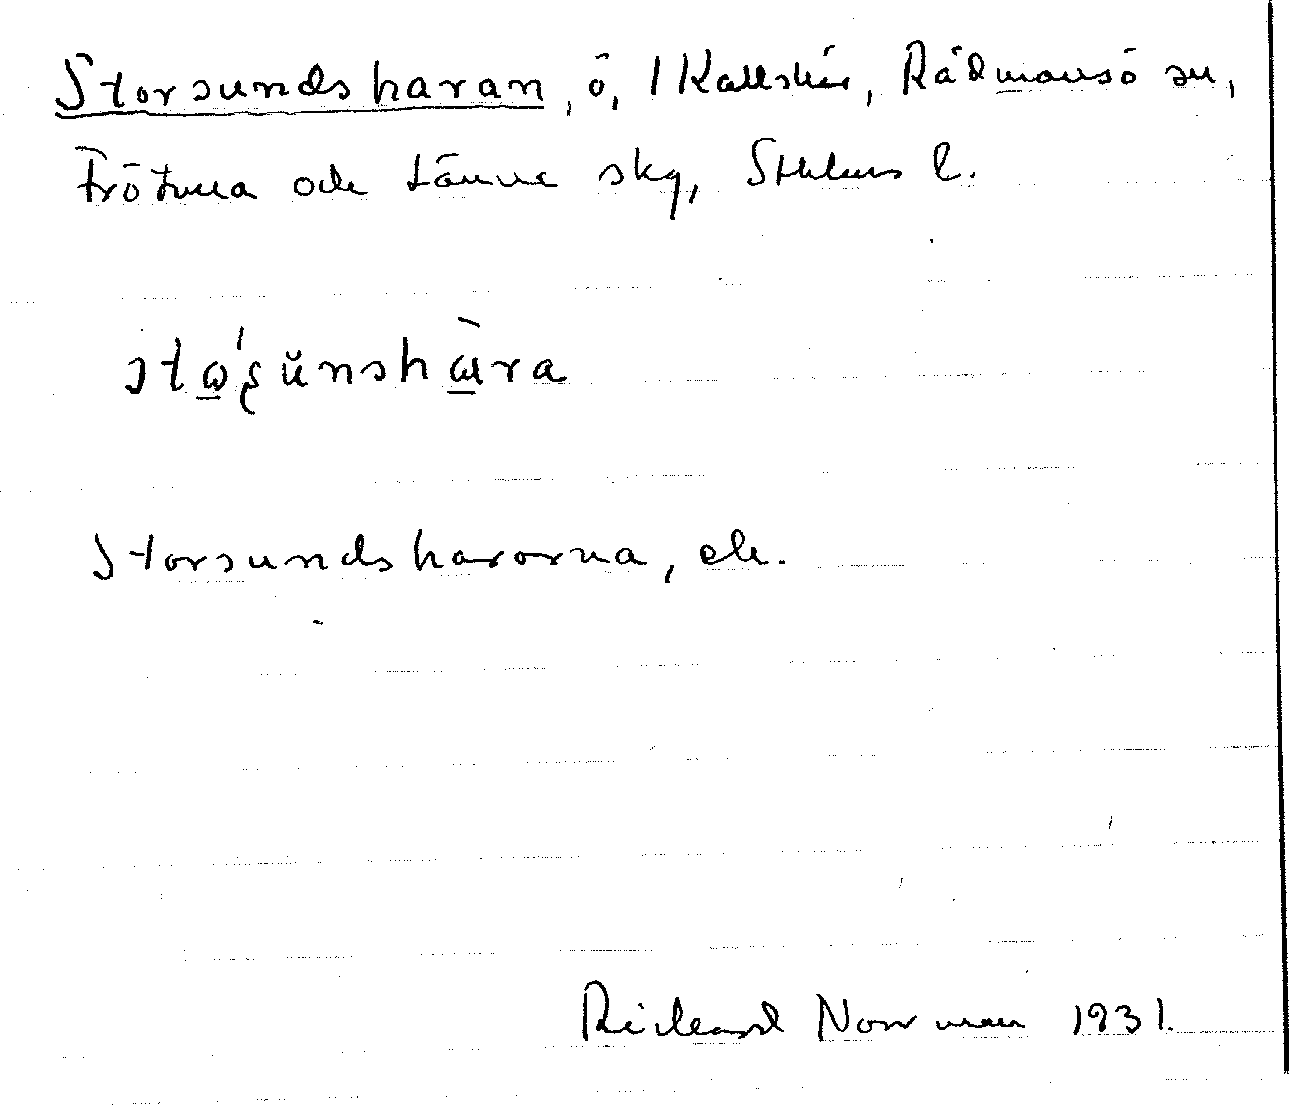 Storsundsharan, ö, 1 Kallskär, Rådmansö sn,
Frötuna och Länna skg, Sthlms l.
Storsundshararna, ek.
Rickard Norrman 1931.